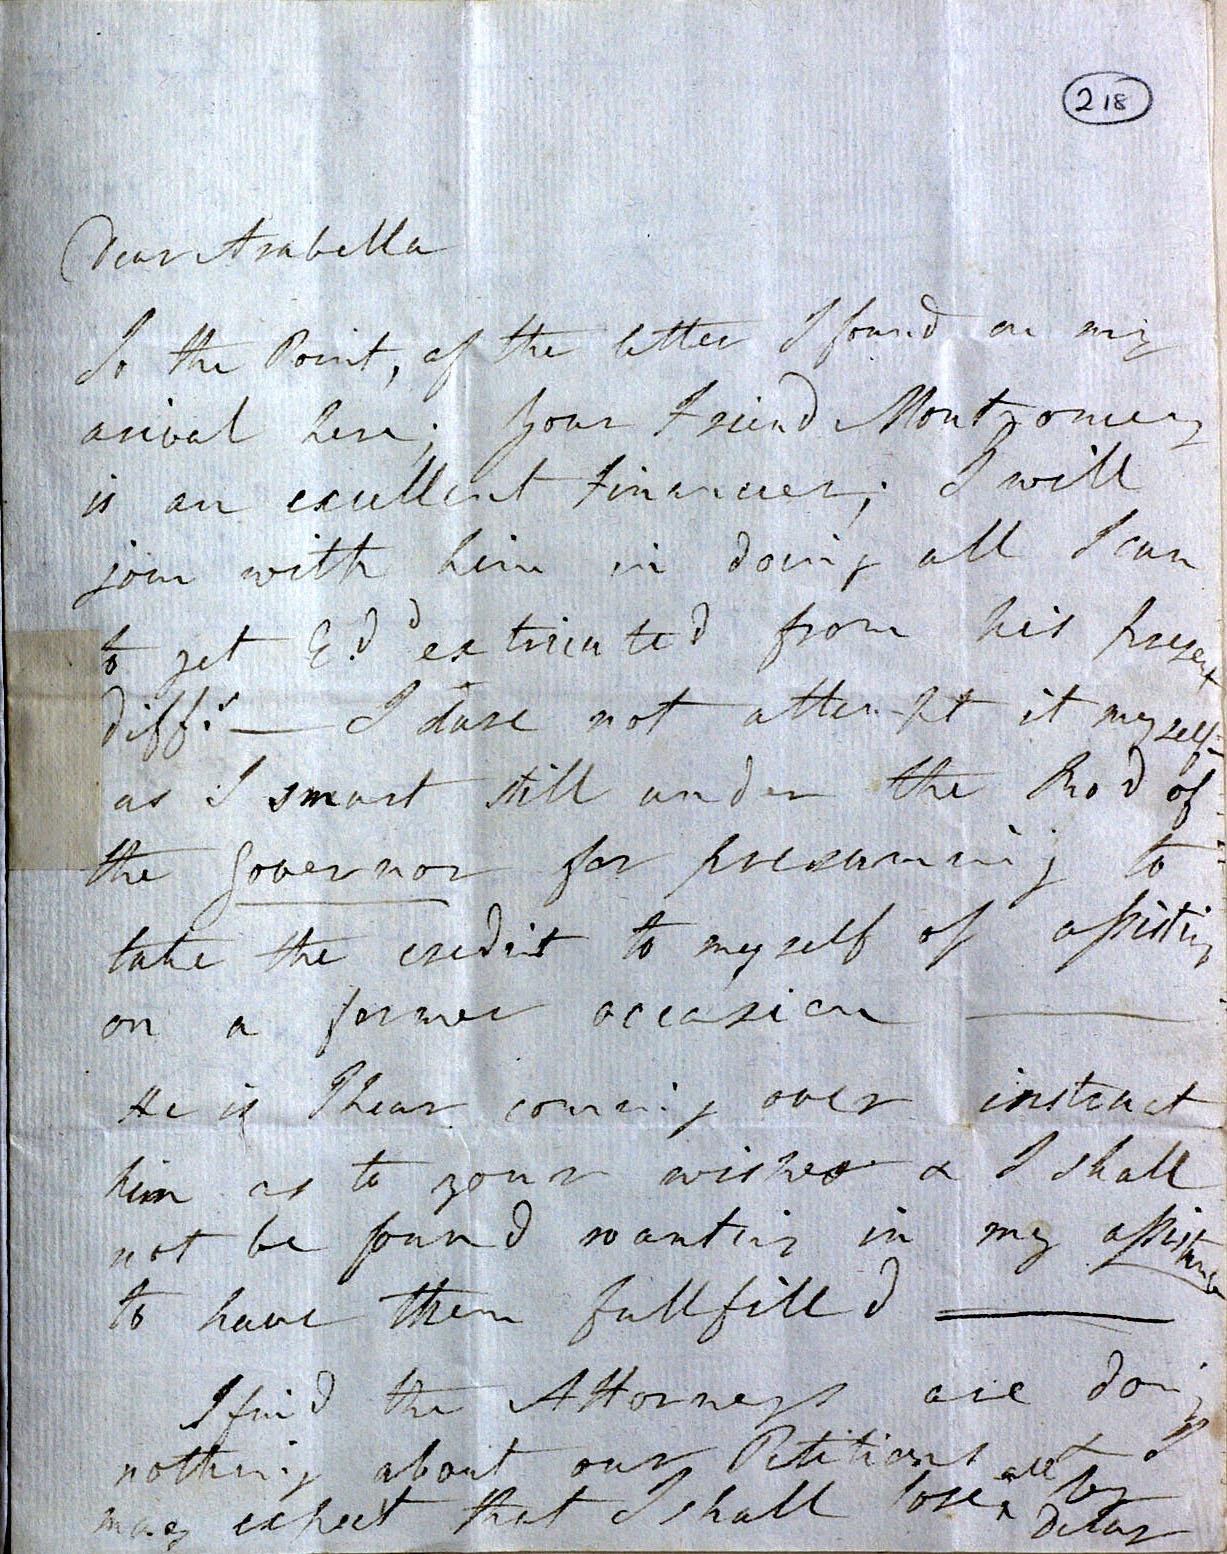 218
Dear Arabella
To the Point, of the letter I found on my
arival here; your Friend Montgomery
is an excellent Financier; I will
join with him in doing all I can
to get Ed.d extricated from his present
diff.s — I dare not attempt it myself
as I smart still under the Rod of
the Governor for presuming to
take the credit to myself of assisting
on a former occasion —
He is I hear coming over instruct
him as to your wishes & I shall
not be found wanting in my assistance
to have them fullfilld —
I find the Attorneys are doing
nothing about our Petitions & I
may expect that I shall lose all by
delay